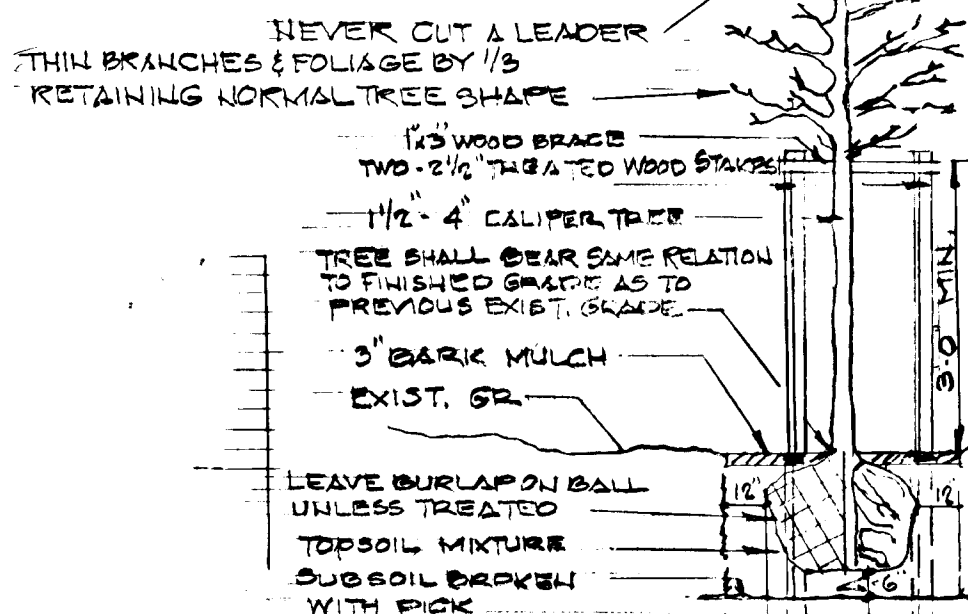 NEVER CUT A LEADER
THIN BRANCHES & FOLIAGE BY 1/3
RETAINING NORMAL TREE SHAPE
1"x3" WOOD BRACE
TWO - 2 1/2" TREATED WOOD STAKES
1 1/2" - 4" CALIPER TREE
TREE SHALL BEAR SAME RELATION
TO FINISHED GRADE AS TO
PREVIOUS EXIST. GRADE
3" BARK MULCH
EXIST. GR.
LEAVE BURLAP ON BALL
UNLESS TREATED
TOPSOIL MIXTURE
SUBSOIL BROKEN
WITH PICK
3'-0" MIN.
12"
12
6"